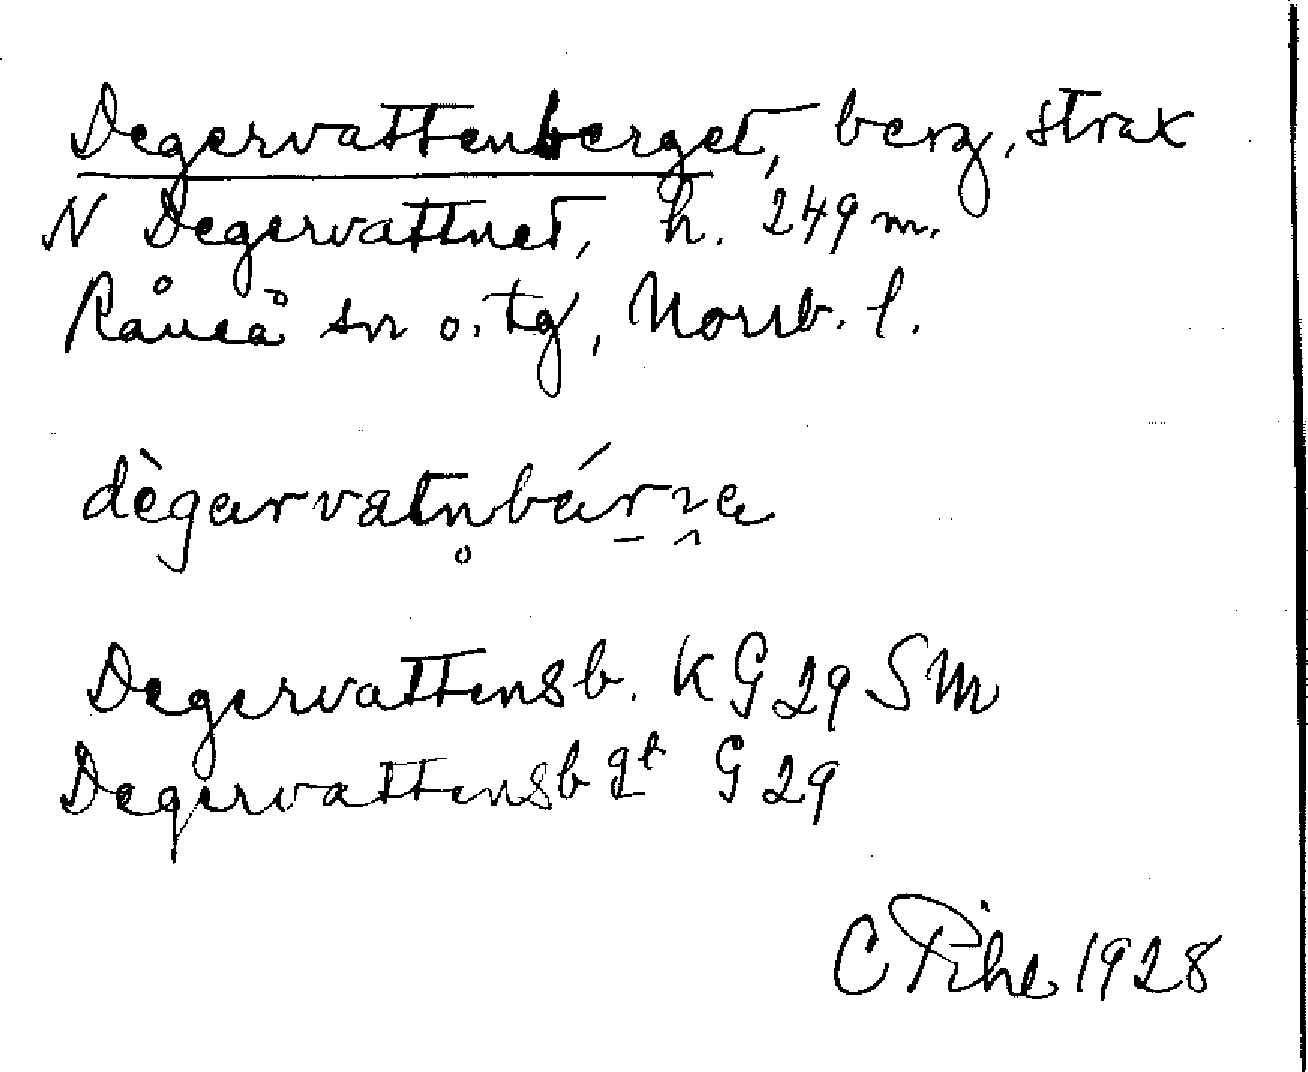 Degervattenberget, berg, strax
N Degervattnet, h. 249 m.
Råneå sn o. tg, Norrb. l.
dègarvatn̥bár̠ɂa
Degervattensb. KG 29 SM
Degervattensbgt G 29
C Pihl 1928